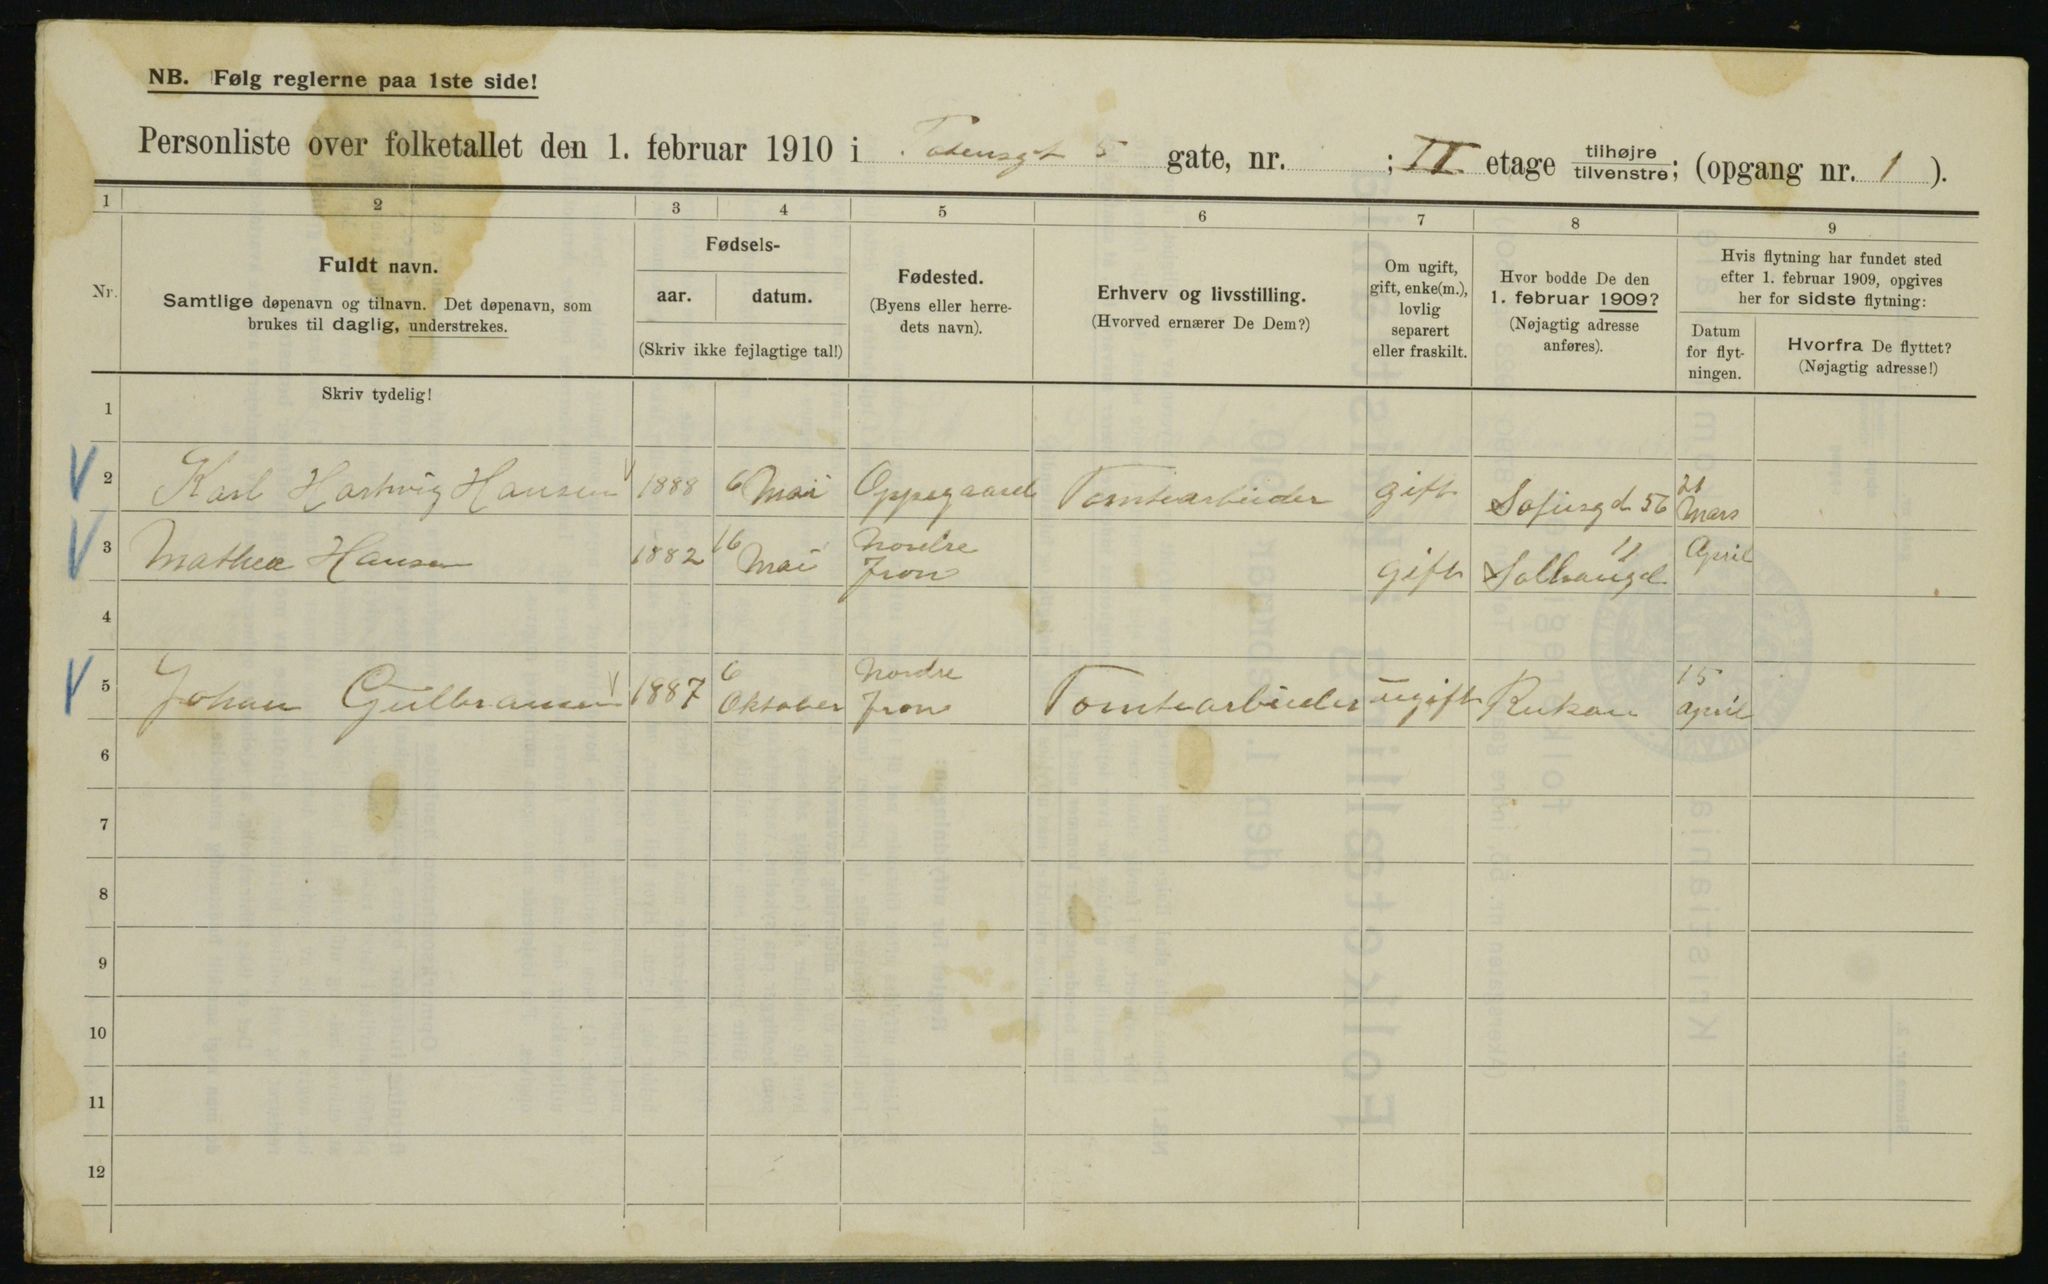 NB. Følg reglerne paa 1ste side!
Personliste over folketallet den 1. februar 1910 i Totensgt 5 gate, nr. ; II etage tilhøjre/tilvenstre; (opgang nr. 1 ).
1 2 3 4 5 6 7 8 9
Nr.
Fuldt navn.
Samtlige døpenavn og tilnavn. Det døpenavn, som
brukes til daglig, understrekes.
Fødsels-
aar. datum.
(Skriv ikke fejlagtige tal!)
Fødested.
(Byens eller herre-
dets navn).
Erhverv og livsstilling.
(Hvorved ernærer De Dem?)
Om ugift,
gift, enke(m.),
lovlig
separert
eller fraskilt.
Hvor bodde De den
1. februar 1909?
(Nøjagtig adresse
anføres).
Hvis flytning har fundet sted
efter 1. februar 1909, opgives
her for sidste flytning:
Datum
for flyt-
ningen.
Hvorfra De flyttet?
(Nøjagtig adresse!)
Skriv tydelig!
1
2 Karl Hartvig Hansen 1888 6 Mai Oppegaard Tomtearbeider gift Sofiesgd 56 21 Mars
3 Mathea Hansen 1882 16 Mai Nordre Fron gift Solhaugd 11 April
4
5 Johan Gulbransen 1887 6 Oktober Nordre Fron Tomtearbeider ugift Rukan 15 April
6
7
8
9
10
11
12